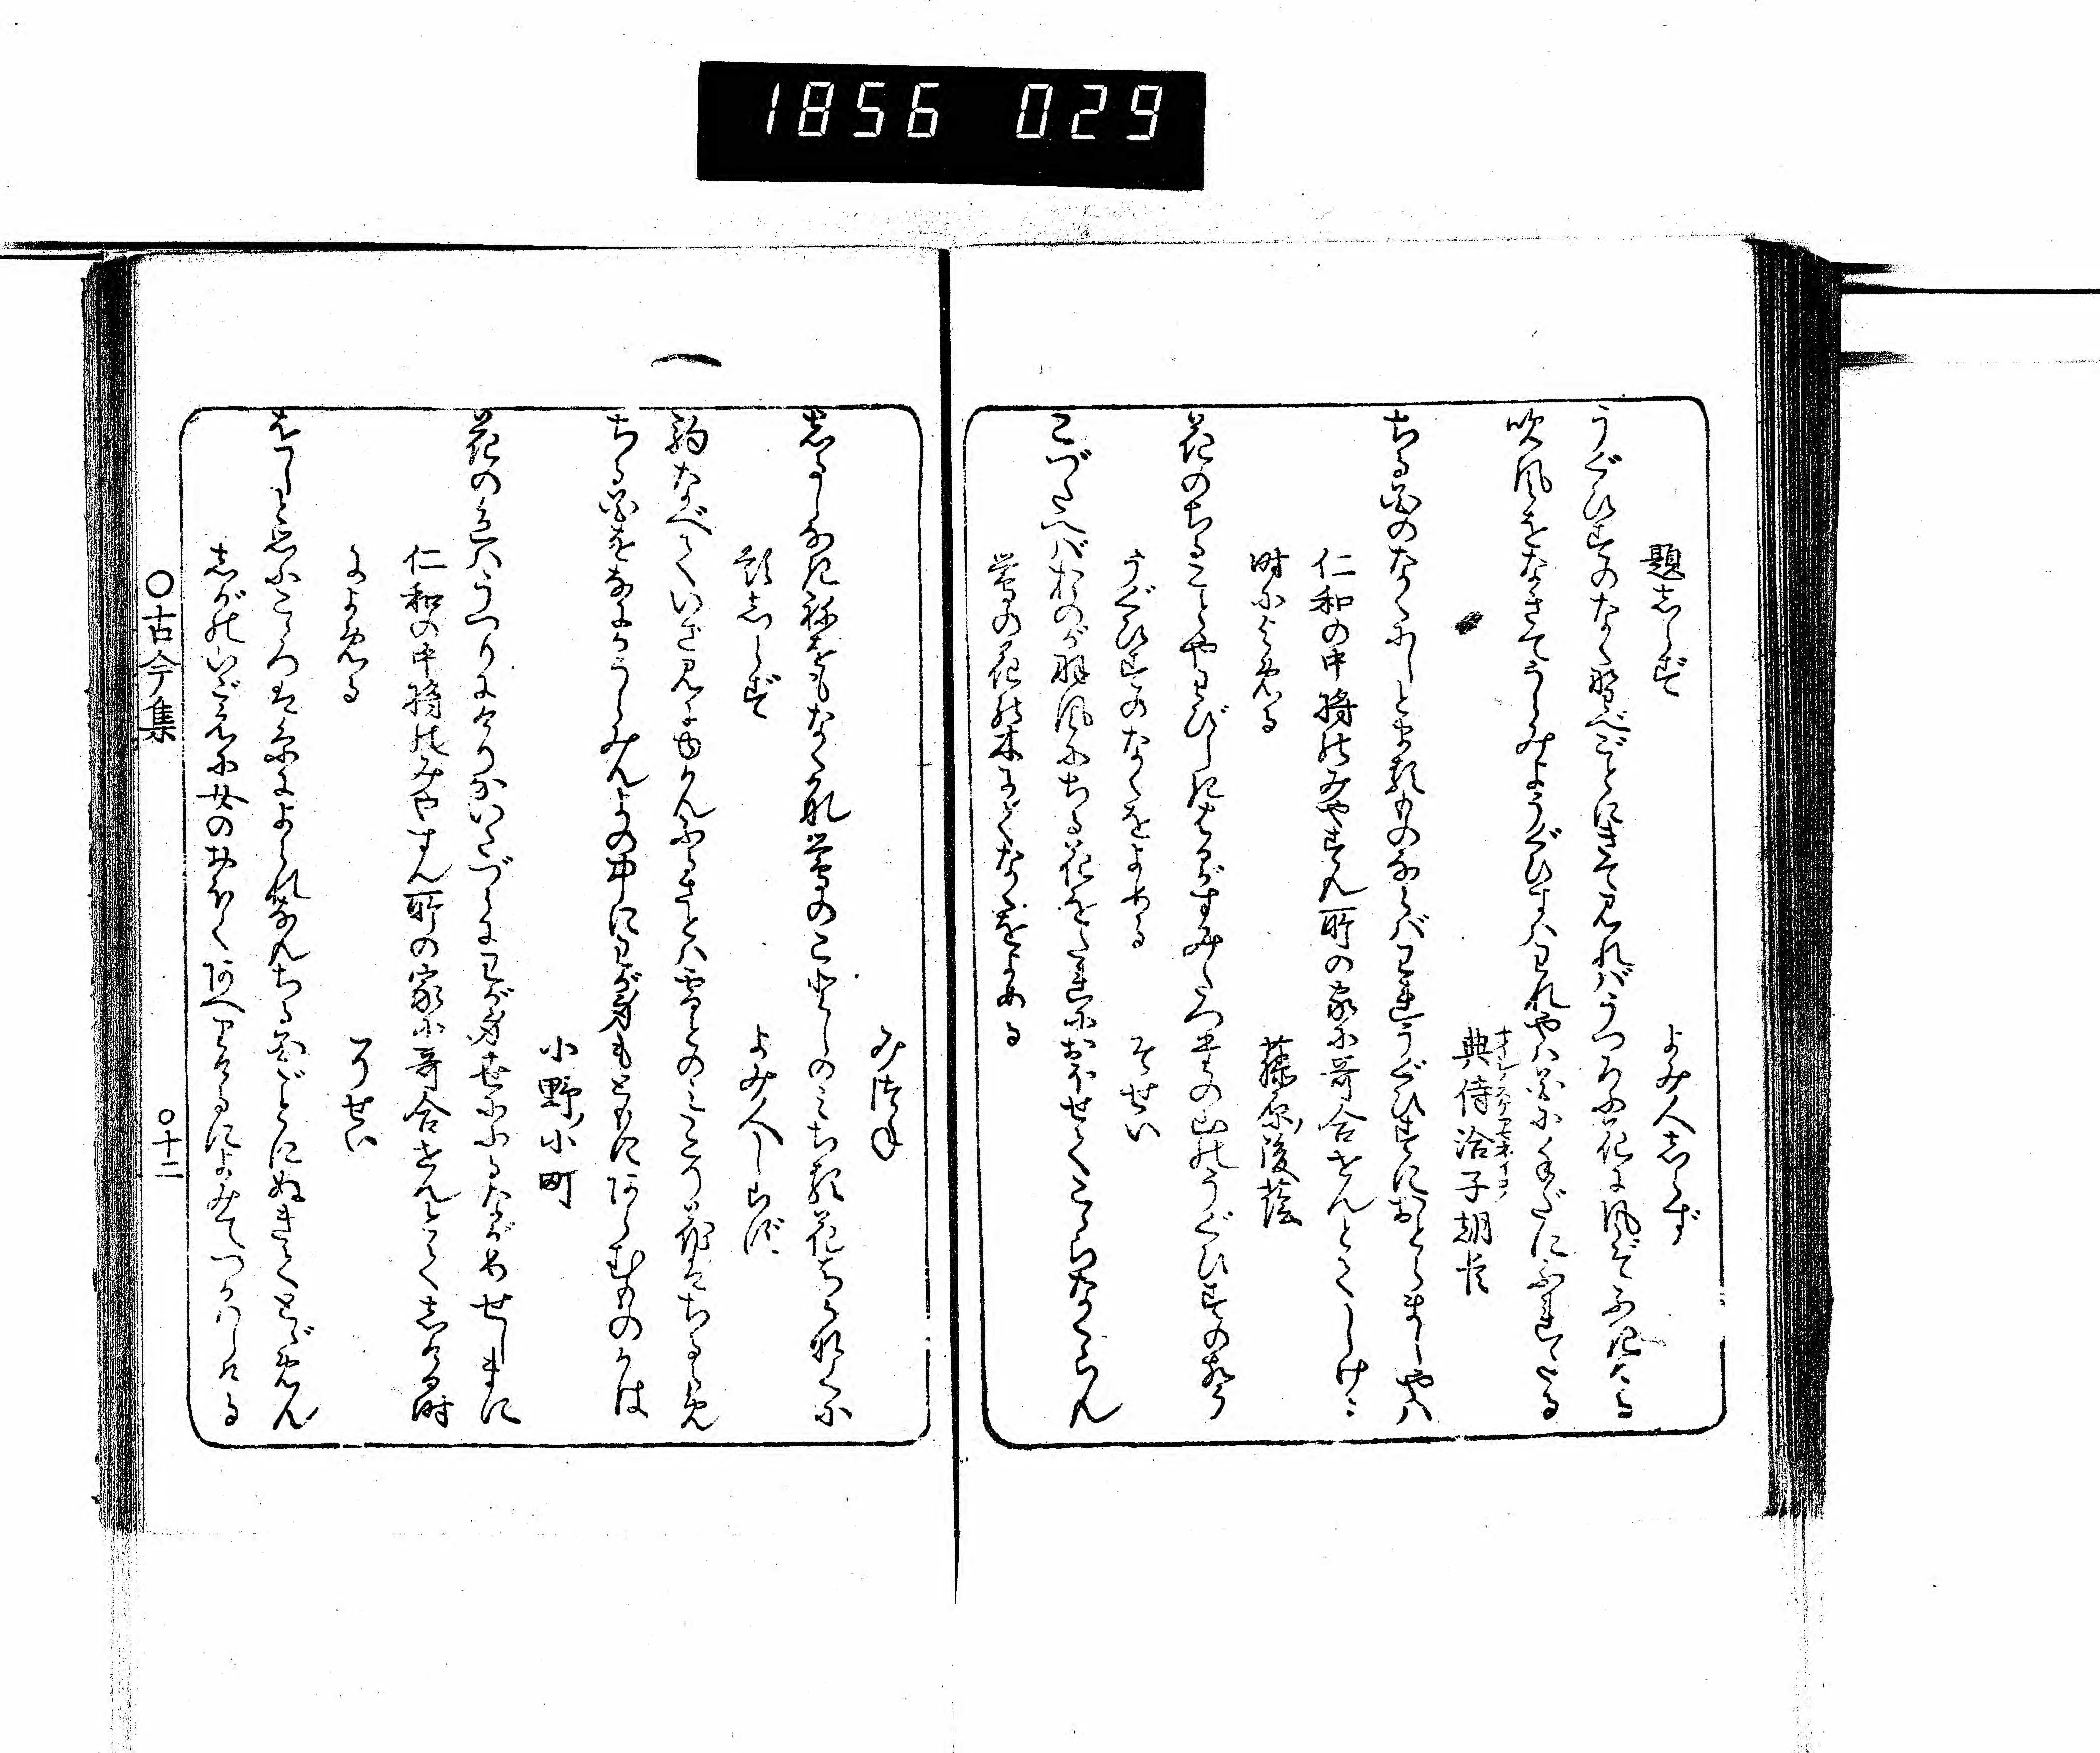 1856 029
題しらず
よみ人しらず
うぐひすのなく野べごとにきて見ればうつろふ花に風ぞふきける
吹風をなきてうらみようぐひすハわれやハ花に手だにふれたる
典侍洽子朝臣
ナイシノスケアマネイコ
ちる花のなくにしとまる物ならバわれうぐひすにおとらましやハ
仁和の中将のみやすん所の家に哥合せんとてしけゝ
時によめる
藤原ノ後蔭
花のちることやわびしきはるがすみたつたの山のうぐひすの声
うぐひすのなくをよめる
そせい
こづたへバおのが羽風にちる花をたれにおほせてこゝらなくらん
鶯の花の木にてなくをよめる
みつね
しるしなき音をもなく哉鶯のことしのミちる花ならなくに
題しらず
よみ人しらず
駒なべていざ見にゆかんふるさとハ雪とのミこそ花はちるらめ
ちる花をなにかうらみんよの中にわが身もともにあらむものかは
小野ノ小町
花の色ハうつりにけりないたづらにわが身世にふるながめせしまに
仁和の中将のみやすん所の家に哥合せんとてしける時
によめる
そせい
をしと思ふこゝろは糸によられなんちる花ごとにぬきてとゞめん
しがの山ごえに女のおほくあへりけるによみてつかハしける
〇古今集
〇十二